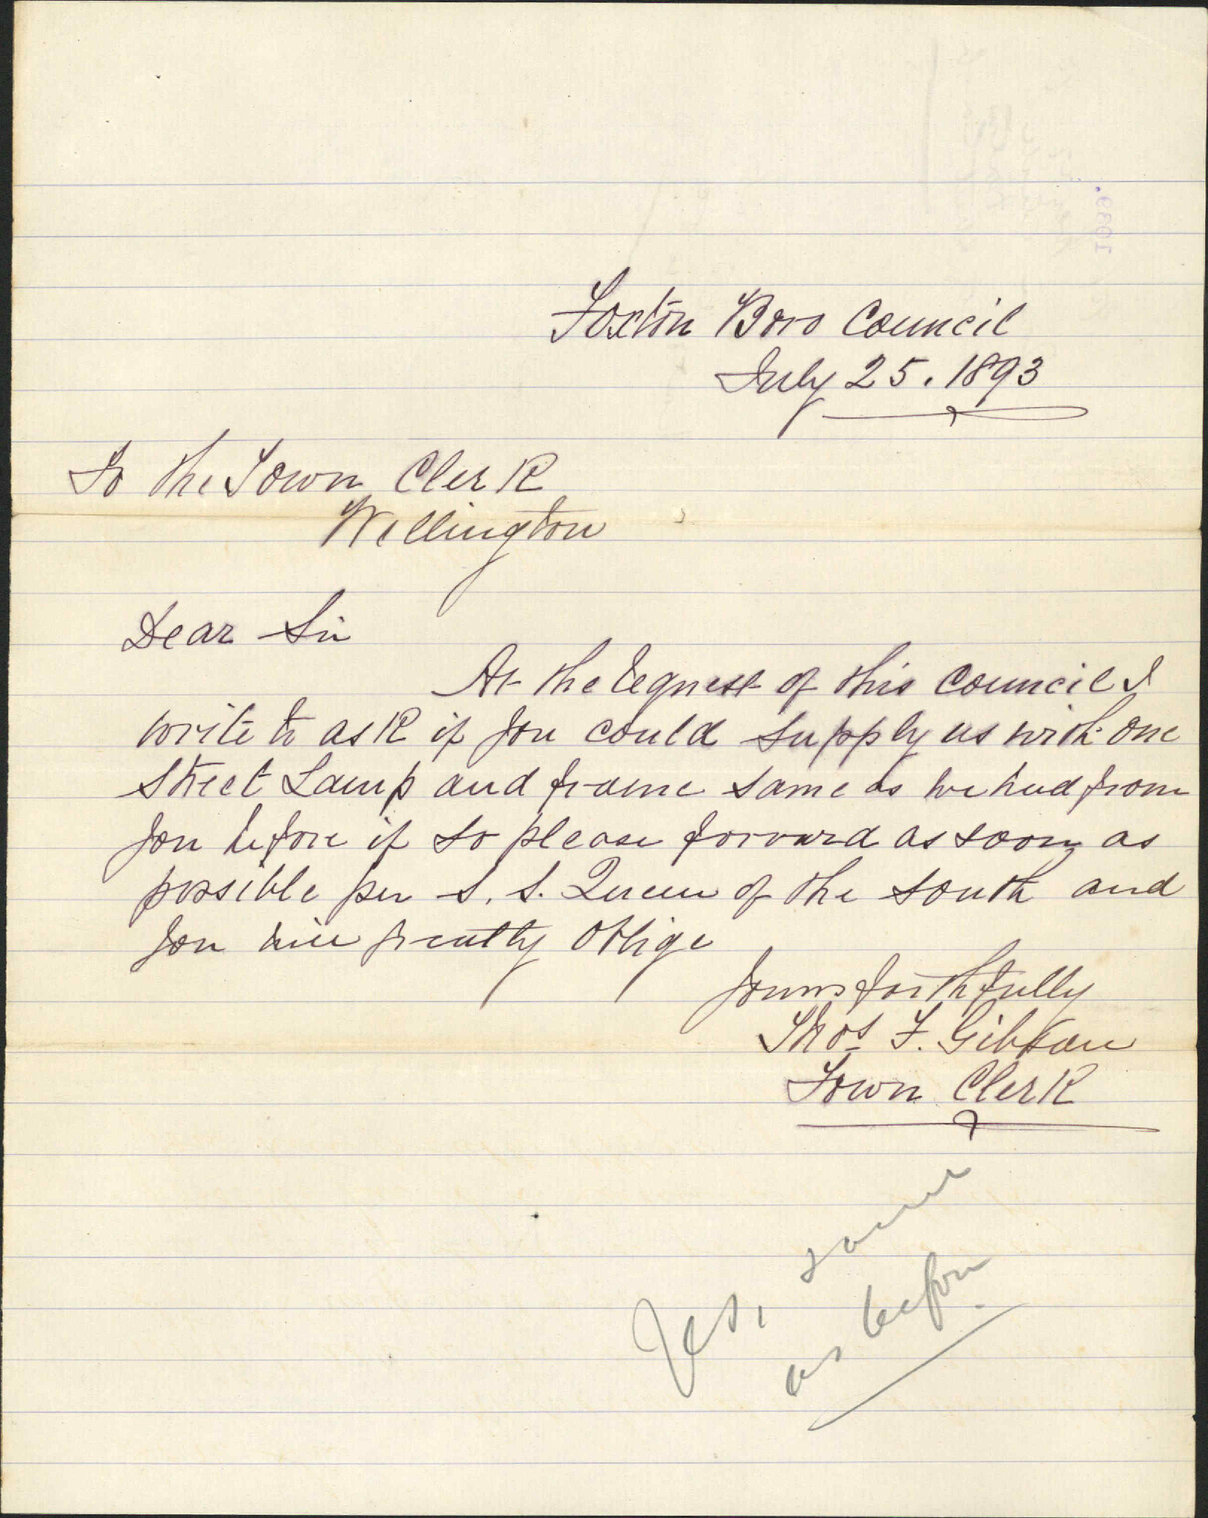 Foxton Boro Council
July 25. 1893
To the Town Clerk
Wellington
Dear Sir
At the request of this Council I
write to ask if you could supply us with one
Street Lamp and frame same as we had from
you before if so please forward as soon as
possible per S. S. Queen of the South and
you will greatly oblige
yours faithfully
Thos F. Gibson
Town Clerk
Yes, same
as before